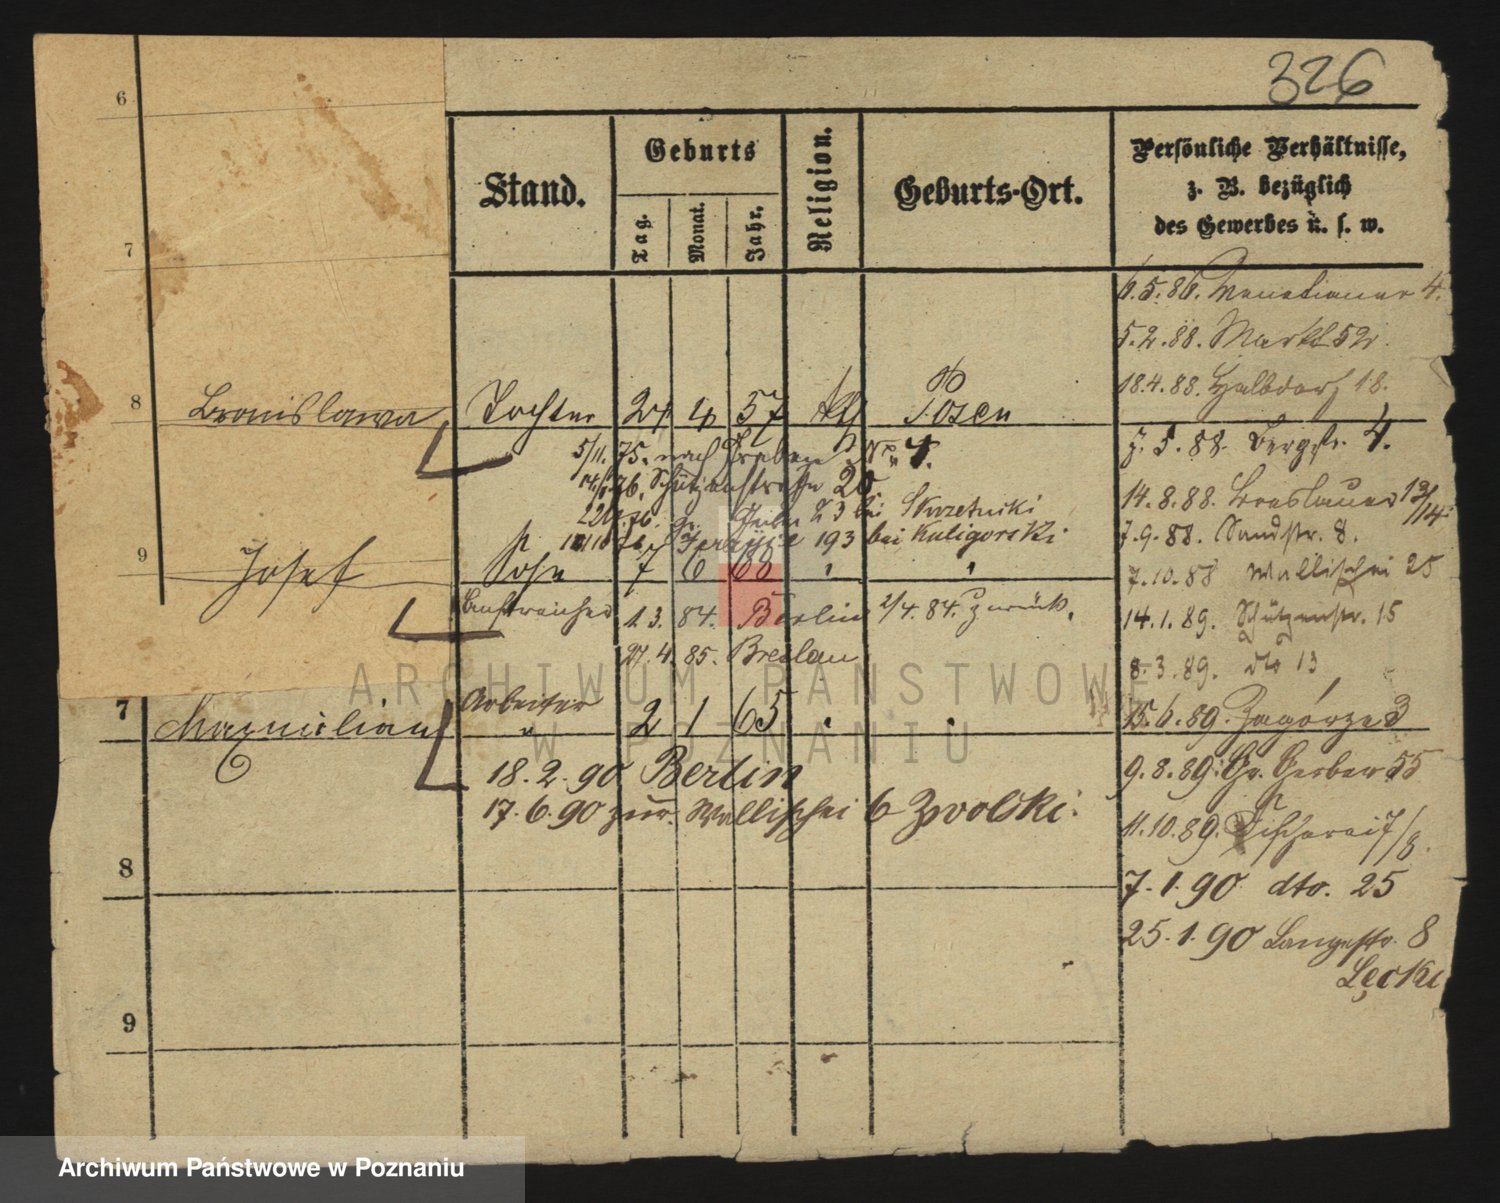 326
6
7
Stand.
Geburts
Tag.
Monat.
Jahr.
Religion.
Geburts-Ort.
Persönliche Verhältnisse,
z. B. bezüglich
des Gewerbes u. s. w.
6.5.86. Venetianer 4.
5.2.88. Markt 52.
18.4.88. Halbdorf 18.
8 Bronislawa Tochter 24 4 57 Posen
5/11. 75. nach
76. Schützenstraße 20
23 bei Skrzetuski
193 bei Kuligorski
5.88. Bergstr. 4.
14.8.88. Breslauer 13/14
7.9.88. Sandstr. 8.
9 Josef Sohn 7 6 60 " "
7.10.88 Wallischei 25
1.3. 84. Berlin 2/4. 84. zurück.
14.1.89. Schützenstr. 15
27. 4. 85. Breslau
8.3.89. dto 13
7 Maxmilian Arbeiter 2 1 65 " "
15.6.89. Zagórze 3
18.2.90 Berlin
9.8.89. Gr. Gerber 55
17.6.90 zur. Wallischei 6 Zwolski.
11.10.89. Fischerei 7/8.
8
7.1.90 dto. 25
25.1.90 Langestr. 8
Lecki
9
ARCHIWUM PAŃSTWOWE
W POZNANIU
Archiwum Państwowe w Poznaniu